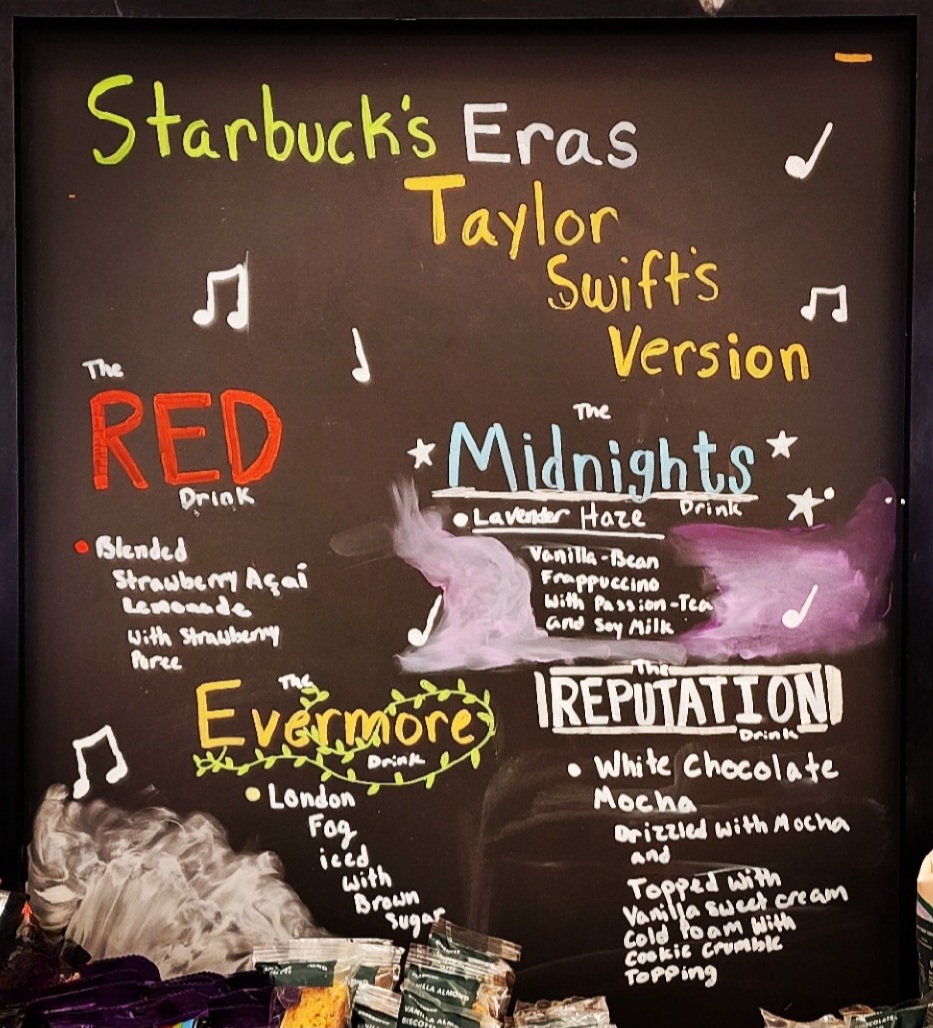 Starbuck's Eras
Taylor
Swift's
Version
The
RED
Drink
Blended
Strawberry Açaí
Lemonade
with Strawberry
Puree
The
Midnights
Drink
Lavender Haze
Vanilla-Bean
Frappuccino
with Passion-Tea
and Soy Milk
The
Evermore
Drink
London
Fog
iced
with
Brown
Sugar
The
REPUTATION
Drink
White Chocolate
Mocha
Drizzled with Mocha
and
Topped with
Vanilla sweet cream
Cold foam with
Cookie Crumble
Topping
VANILLA ALMOND
BISCOTTI